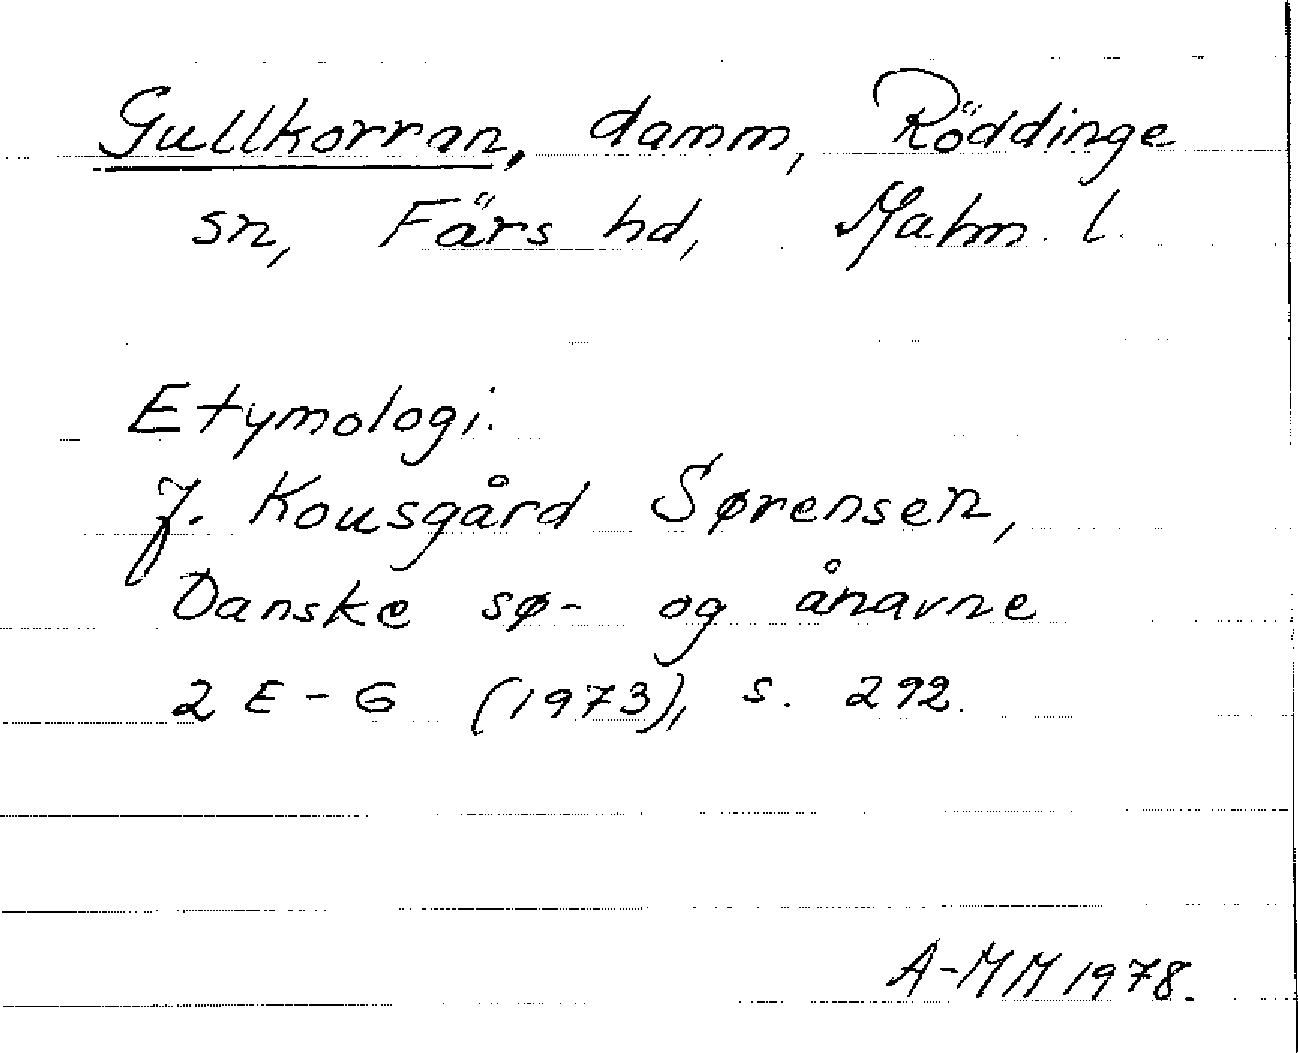 Gullkorran, damm, Röddinge
sn, Färs hd, Malm. l.
Etymologi.
J. Kousgård Sørensen,
Danske sø- og ånavne
2 E-G (1973), s. 292.
A-MM 1978.